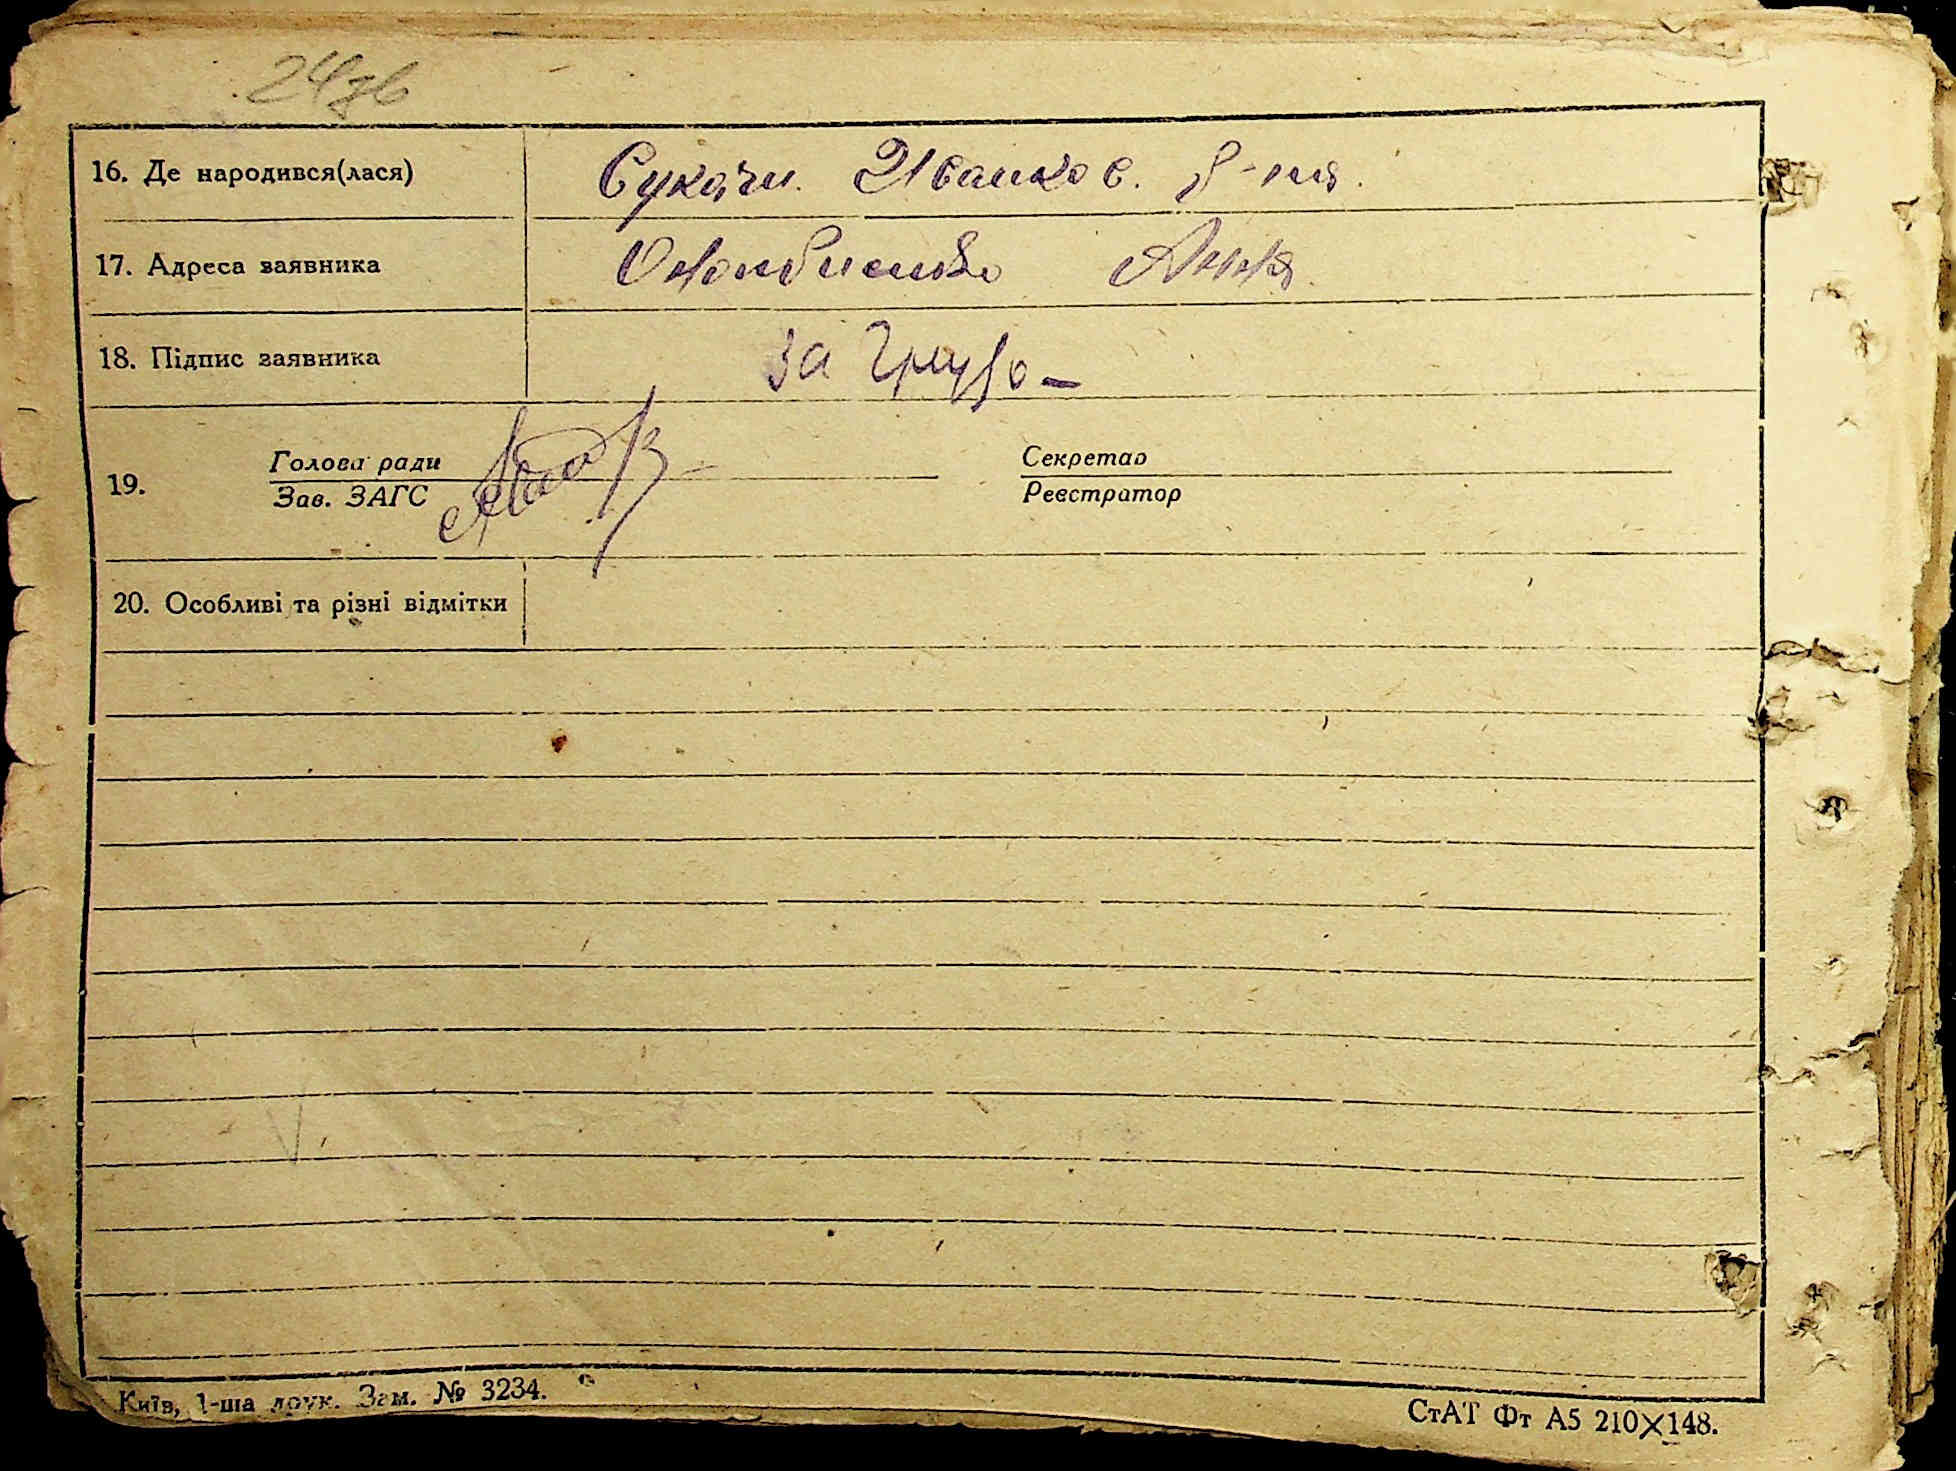 24зв
16. Де народився(лася) Сукачи. Иванков. р-на.
17. Адреса заявника Анна
18. Підпис заявника за
Голова ради Секретар
19.
Зав. ЗАГС Реєстратор
20. Особливі та різні відмітки
Київ, 1-ша друк. Зам. № 3234. СтАТ Фт А5 210×148.